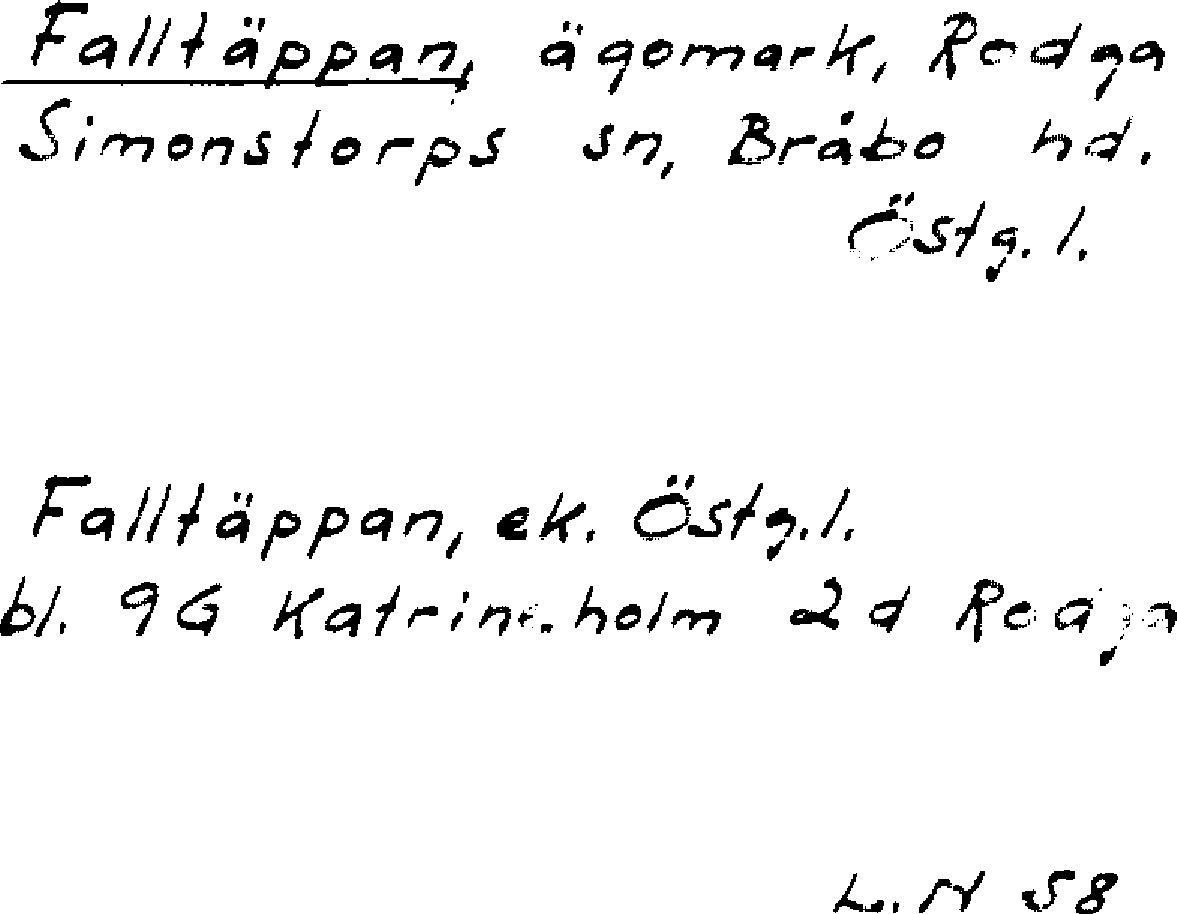 Falltäppan, ägomark, Rodga
Simonstorps sn, Bråbo hd.
Östg. l.
Falltäppan, ek. Östg. l.
bl. 9G Katrineholm 2d Rodga
L. N 58